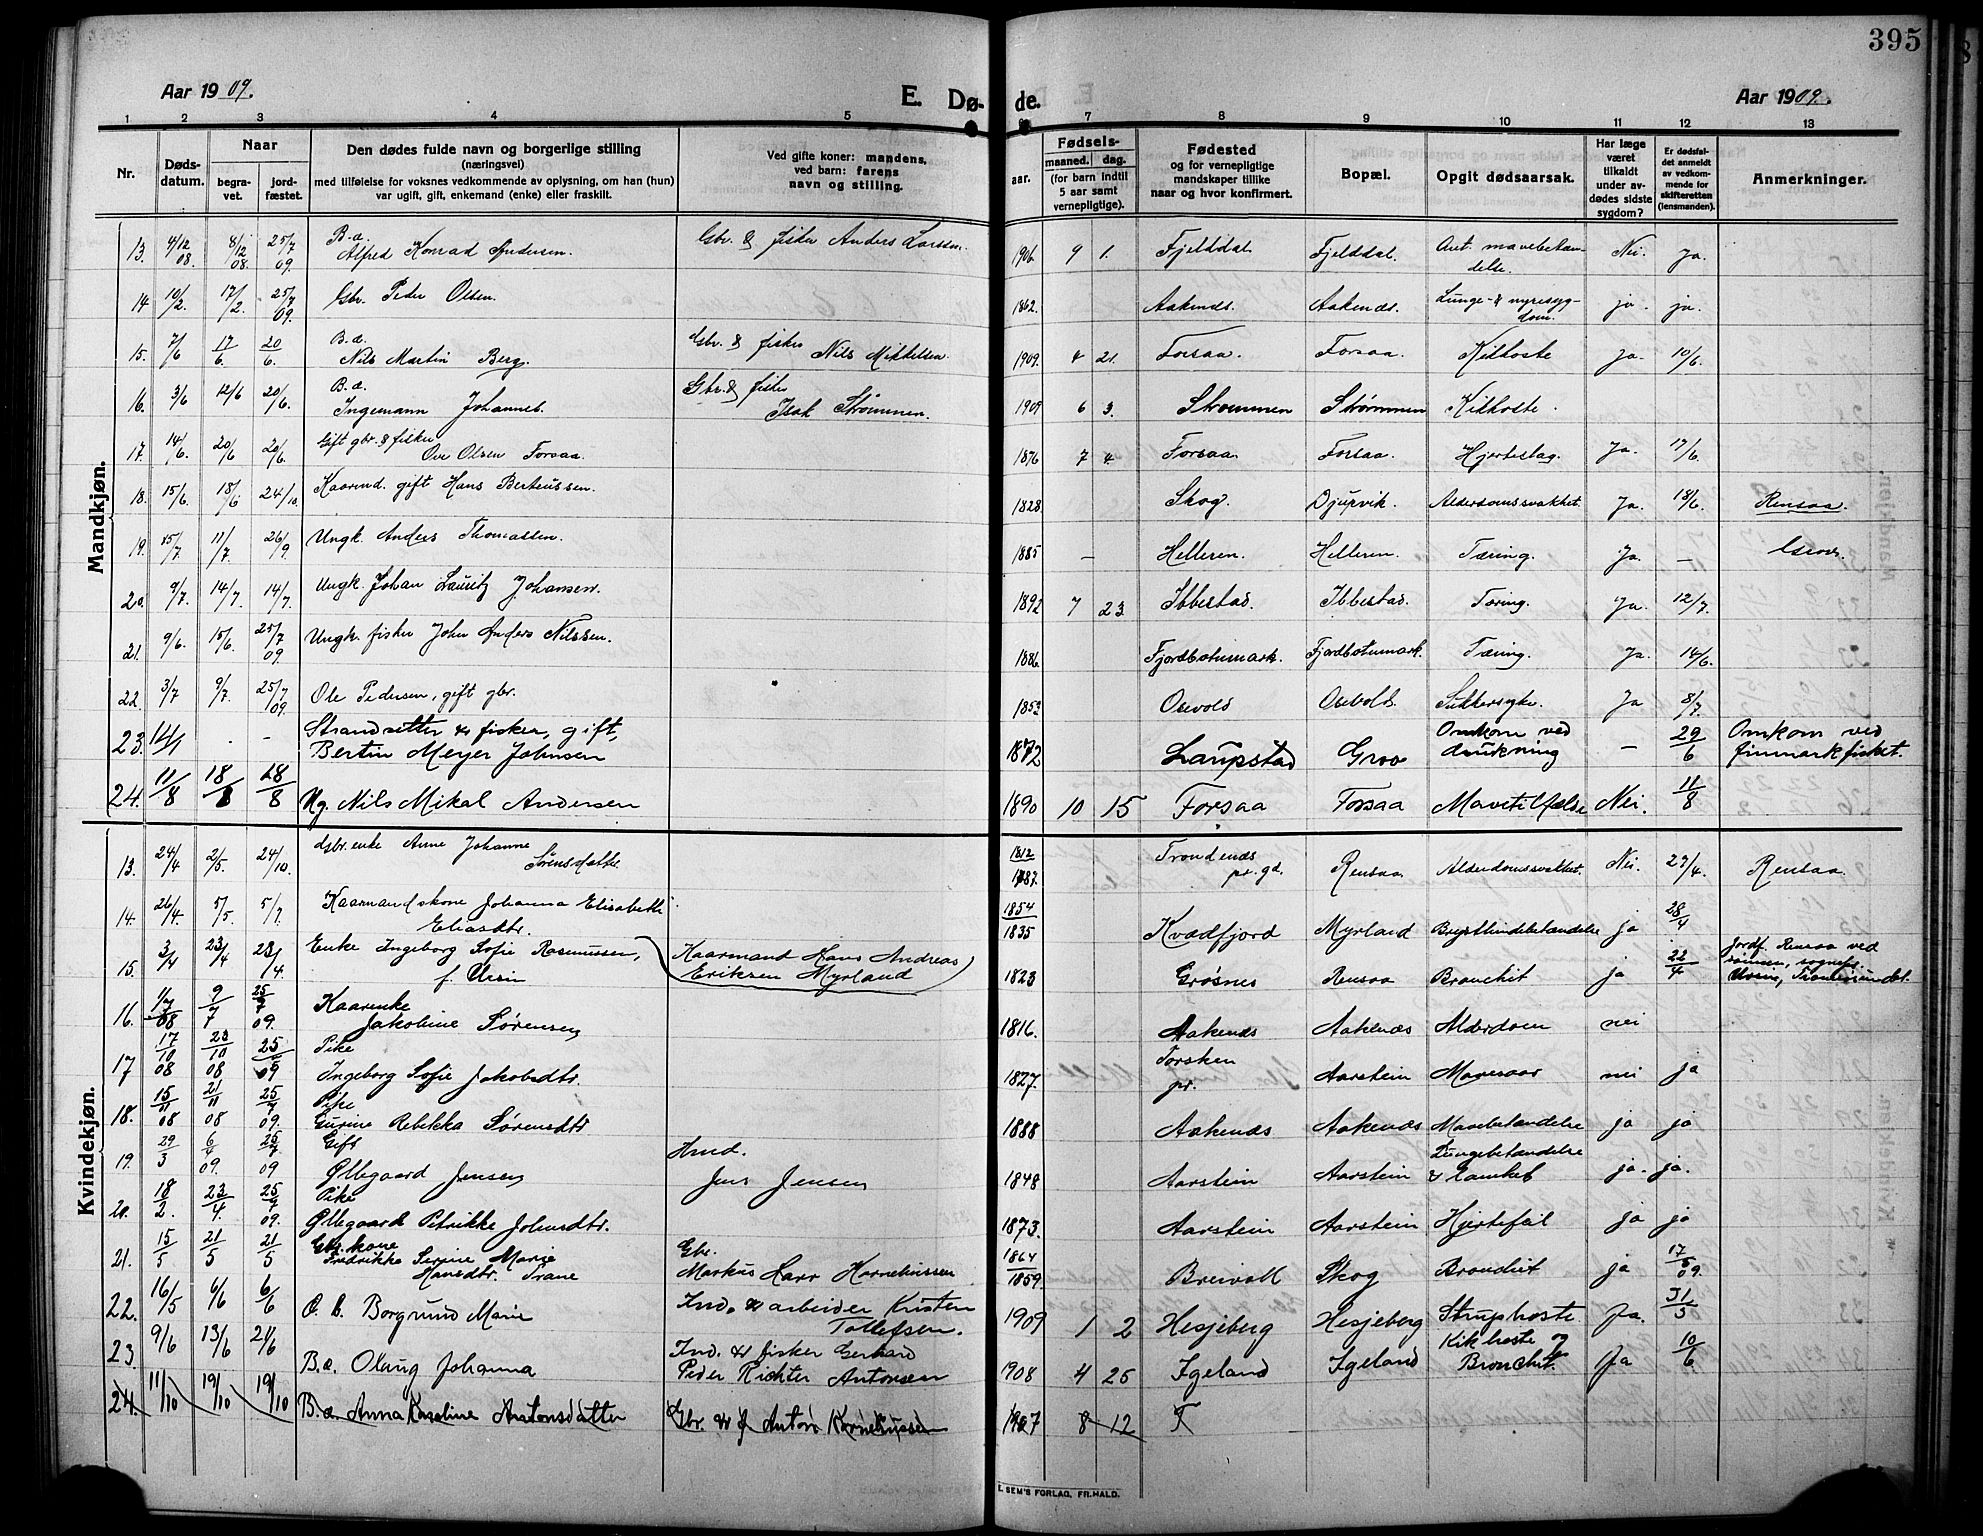 395
Aar 1909. E. Dø- de. Aar 1909.
1 2 3 4 5 6 7 8 9 10 11 12 13
Nr. Døds-datum. Naar begra-vet. jord-fæstet. Den dødes fulde navn og borgerlige stilling (næringsvei) med tilføielse for voksnes vedkommende av oplysning, om han (hun) var ugift, gift, enkemand (enke) eller fraskilt. Ved gifte koner: mandens, ved barn: farens navn og stilling. Fødsels- aar. maaned. dag. (for barn indtil 5 aar samt vernepligtige). Fødested og for vernepligtige mandskaper tillike naar og hvor konfirmert. Bopæl. Opgit dødsaarsak. Har læge været tilkaldt under av-dødes sidste sygdom? Er dødsfal-det anmeldt av vedkom-mende for skifteretten (lensmanden). Anmerkninger.
Mandkjøn.
13. 4/12 08. 8/12 08. 25/7 09. B. æ. Alfred Konrad Andersen. Gbr. & fisker Anders Larsen. 1906. 9 1. Fjelddal. Fjelddal. mavebetændelse. Nei. ja.
14 10/2. 17/2. 25/7 09. Gbr. Peder Olsen. 1862. Aakenes. Aakenæs. Lunge- & nyresygdom. ja. ja.
15. 7/6 17/6. 20/6. B. æ. Nils Martin Berg. Gbr. & fisker Nils Mikkelsen. 1909. 4 21. Forsaa. Forsaa. Kikhoste ja. 10/6.
16. 3/6 12/6 20/6. B. æ. Ingemann Johannes. Gbr. & fisker Isak Strømmen. 1909 6 3. Strømmen Strømmen Kikhoste.
17. 14/6. 20/6 20/6. Gift gbr. & fisker Ove Olsen Forsaa 1876 7 4. Forsaa. Forsaa. Hjerteslag. Ja. 17/6.
18. 15/6 18/6 24/10. Kaarmd. gift Hans Berteussen. 1828. Skog. Djupvik. Alderdomssvakhet. Ja. 18/6. Rensaa.
19. 15/7. 11/7. 26/9. Ungk. Anders Thomassen. 1885 — Helleren. Helleren. Tæring. Ja. —
20. 9/7. 14/7. 14/7. Ungk. Johan Lauritz Johansen. 1892 7 23 Ibbestad. Ibbestad. Tæring. Ja. 12/7.
21. 9/6. 15/6. 25/7 09. Ungk. fisker John Anders Nilssen. 1886. Fjordbotnmark. Fjordbotnmark. Tæring. Ja. 14/6.
22. 3/7 9/7. 25/7 09. Ole Pedersen, gift gbr. 1853 Osevold Osevold. Sukkersyke. Ja 8/7.
23. 14/1 . - Strandsitter & fisker, gift, Bertin Meyer Johnsen 1872 Laupstad Grov Omkom ved drukning — 29/6 Omkom ved finmarkfisket.
24. 11/8 18/8 18/8 Ug. Nils Mikal Andersen 1890 10 15 Forsaa Forsaa Mavetilfælde Nei. 11/8
Kvindekjøn.
13. 24/4 2/5. 24/10. Gbr. enke Anne Johanne Sørensdatter 1812 Trondenæs pr. gd. Rensaa Alderdomssvakhet. Nei. 27/4. Rensaa.
14. 26/4. 5/5. 5/7. Kaarmandskone Johanna Elisabeth Eliasdtr. 1854 1835 Kvædfjord Myrland Brysthindebetændelse ja 28/4
15. 3/4 23/4 23/4. Enke Ingeborg Sofie Rasmussen, f. Ursin Kaarmand Hans Andreas Eriksen Myrland 1823 Grøsnes Rensaa Bronchit ja 22/4 Jordf. Rensaa ved sønnen, sognefr. Ursin, Tromsøsundet.
16. 1/7 08 9/7 25/7 09. Kaarenke Jakobine Sørensen 1816. Aakenæs Aakenæs Alderdom nei
17 17/10 08 23/10 08 25 09 Pike Ingeborg Sofie Jakobsdtr. 1827. Torsken pr. Aarstein Mavesaar nei ja
18. 15/11 08 21/11 08 25/7 09. Pike Gurine Rebekka Sørensdtr 1888 Aakenæs Aakenæs Mavebetændelse ja ja
19. 29/3 6/4 09. 25/7 09 Gift Øllegaard Jensen Hmd. Jens Jensen 1848 Aarstein Aarstein Lungebetændelse & lamhet ja. ja.
20. 18/2. 23/4. 25/7 09. Pike Øllegaard Petrikke Johnsdtr. 1873. Aarstein Aarstein Hjertefeil ja ja
21. 15/5 21/5 21/5 Gbr.kone Fredrikke Serine Marie Hansdtr. Trane Gbr. Markus Harr Kornelinssen 1864 1859. Breivoll Skog Bronchit ja 17/5 09.
22. 16/5 6/6 6/6 Borgrund Marie Ind. & arbeider Kristen Tollefsen. 1909 1 2 Hesjeberg Hesjeberg Struphoste Ja. 31/5
23 9/6 13/6 21/6 B. æ. Olaug Johanna Ind. & fisker Gerhard Peder Richter Antonsen 1908 4 25 Igeland Igeland Kikhoste og Bronchit. Ja 10/6
24. 11/10 19/10 19/10 B. æ. Anna Karoline Antonsdatter Gbr. & f Anton Korneliussen 1907 8 12 T
E. SEM'S FORLAG, FR.HALD.